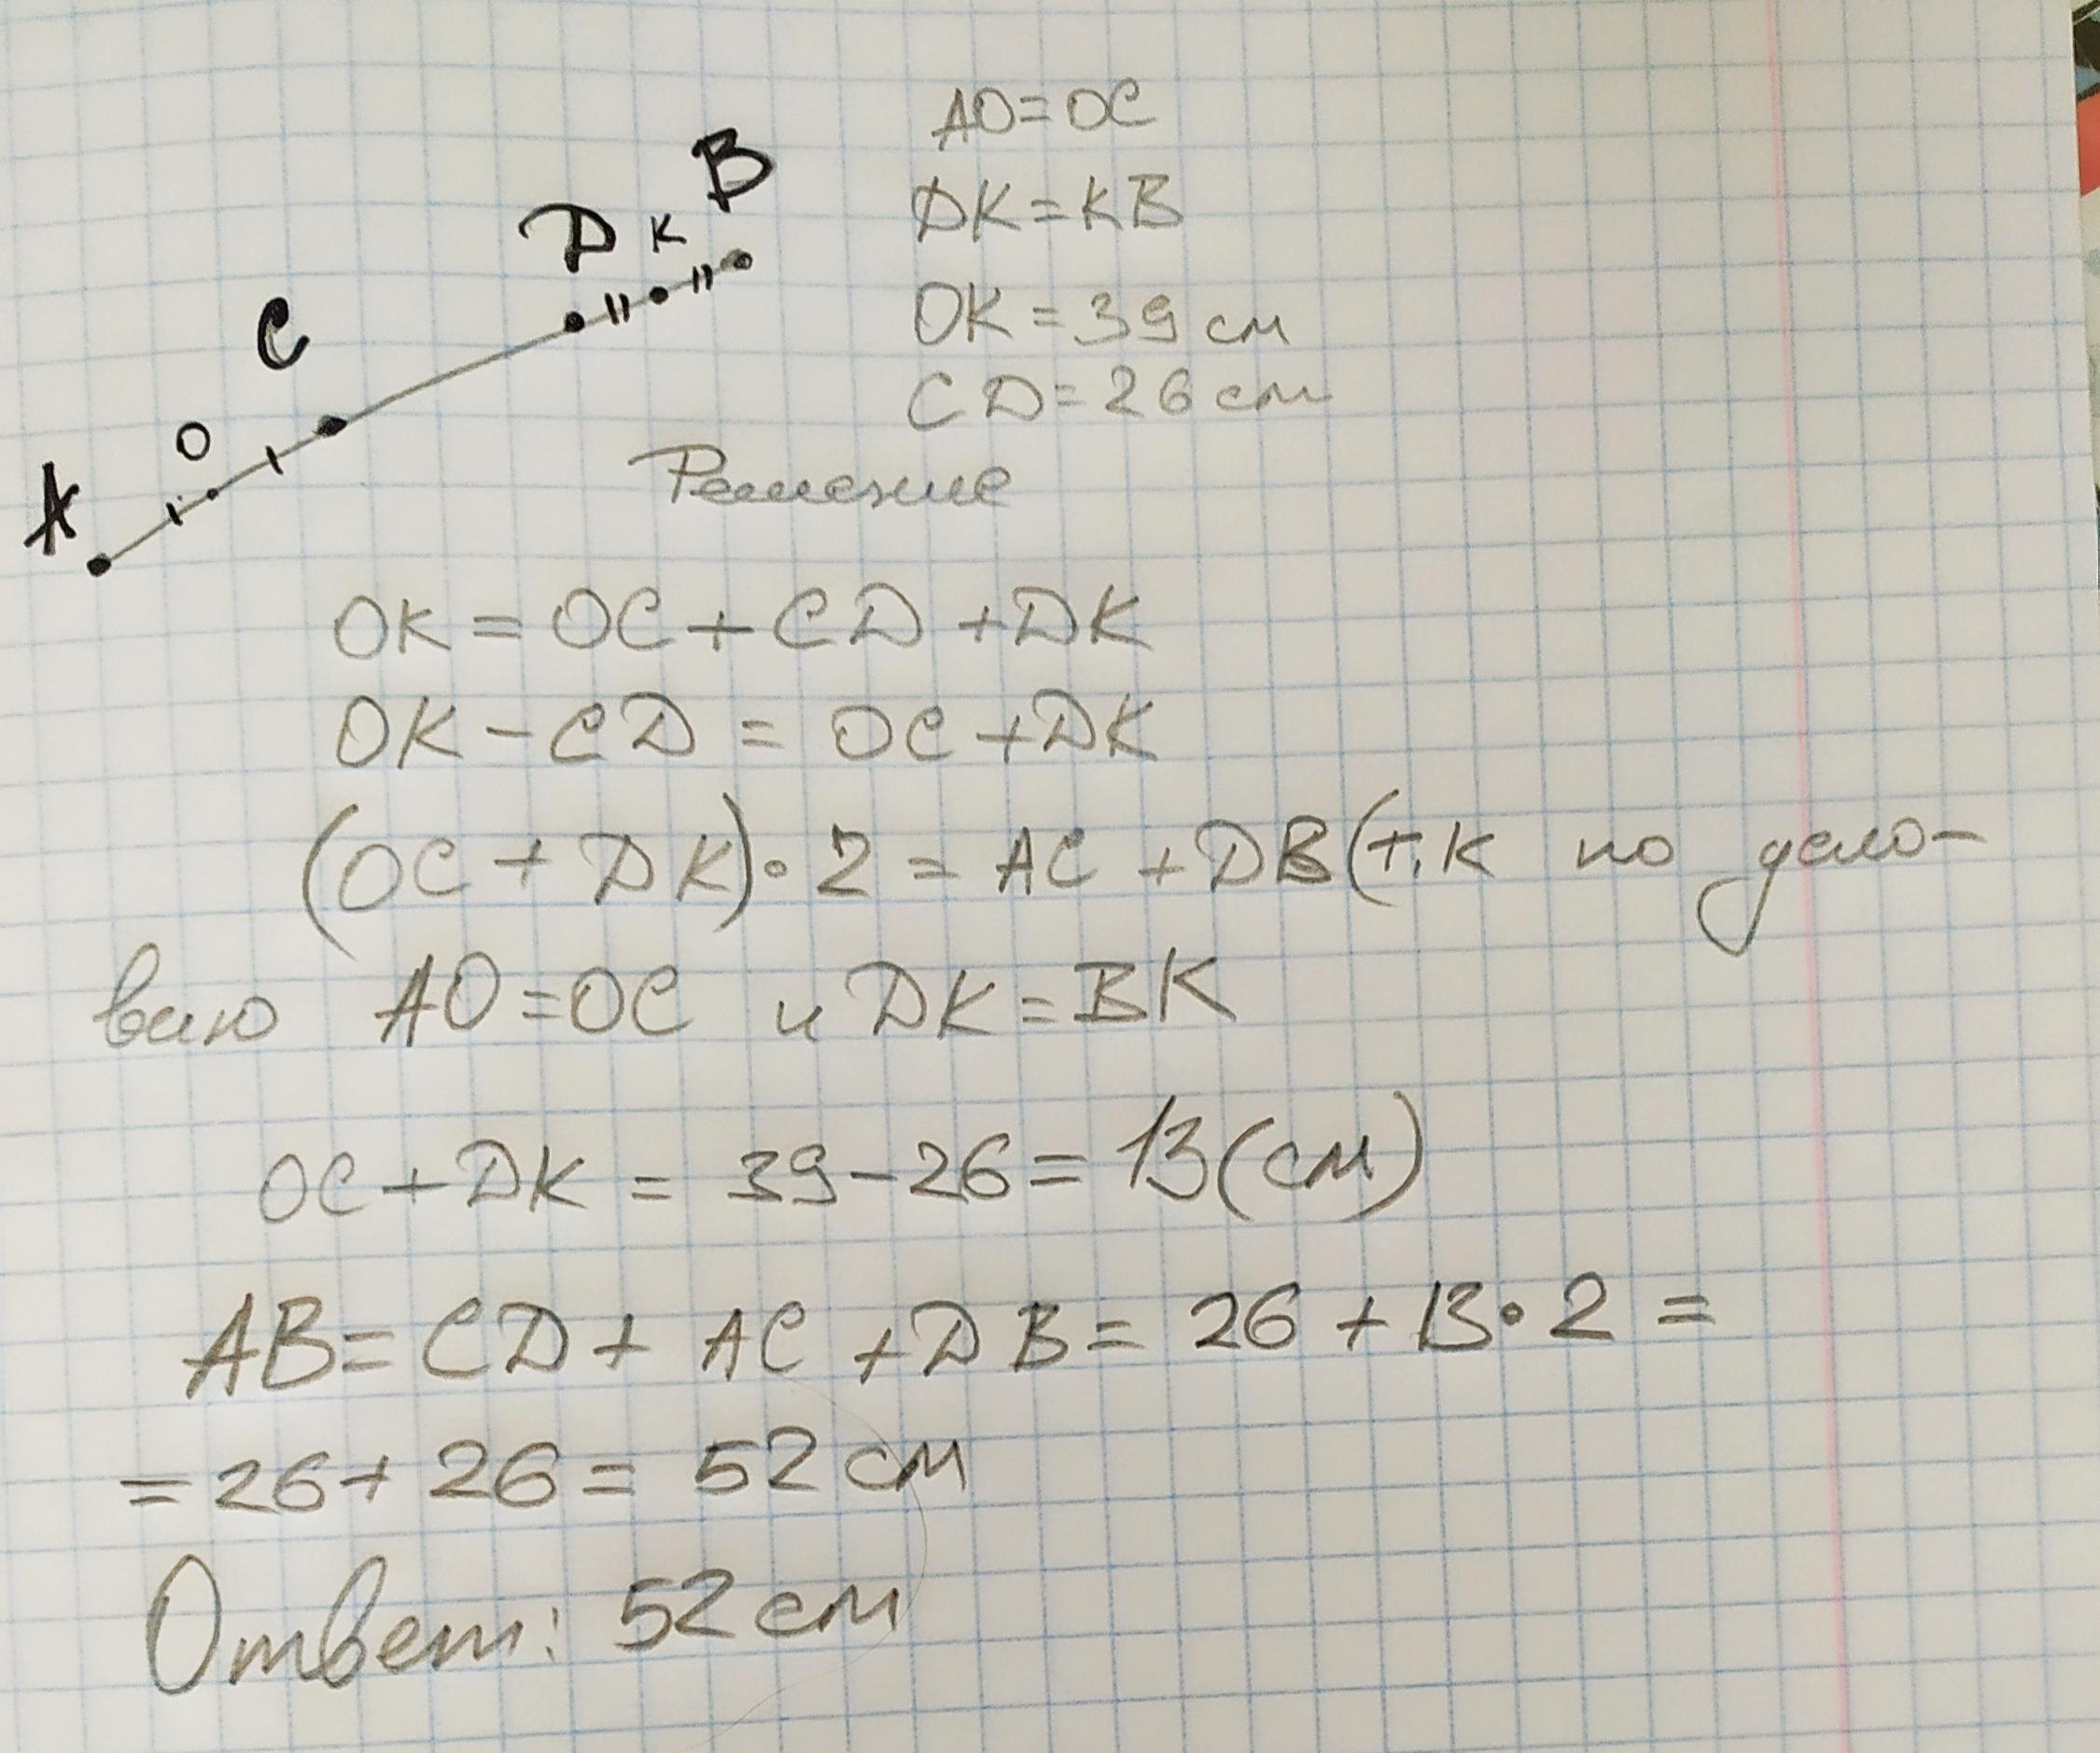 AO=OC
B
DK=KB
D K
OK=39 см
C
CD=26 см
O
Решение
A
OK=OC+CD+DK
OK-CD=OC+DK
(OC+DK)·2=AC+DB(т.к по усло-
вию AO=OC и DK=BK
OC+DK=39-26=13(см)
AB=CD+AC+DB=26+13·2=
=26+26=52 см
Ответ: 52 см